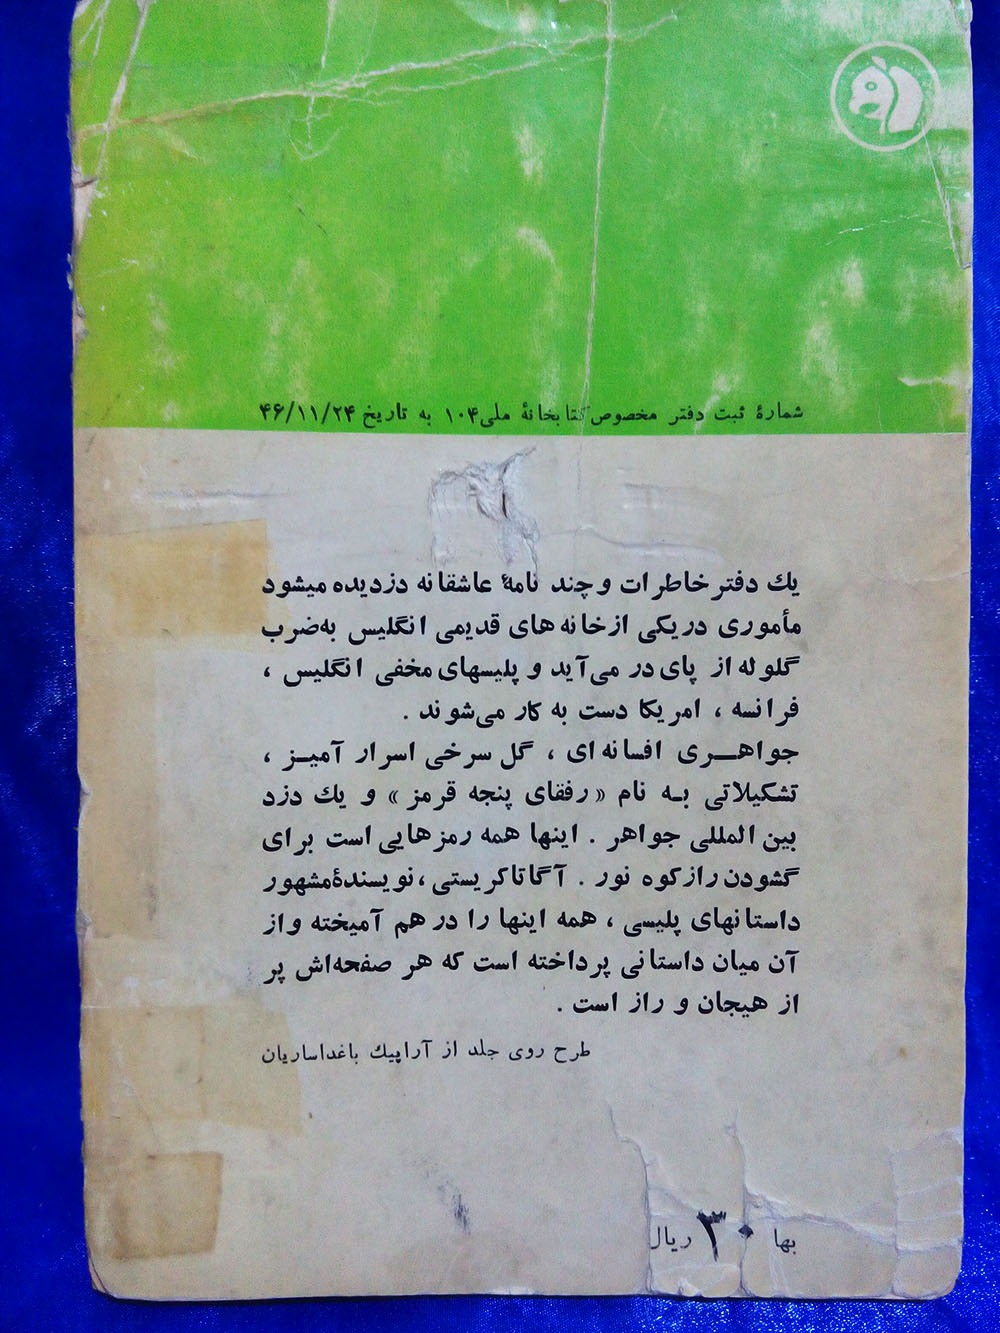 شمارهٔ ثبت دفتر مخصوص کتابخانهٔ ملی ۱۰۴ به تاریخ ۴۶/۱۱/۲۴
یك دفتر خاطرات و چند نامهٔ عاشقانه دزدیده میشود
مأموری در یکی از خانه های قدیمی انگلیس به ضرب
گلوله از پای در می آید و پلیسهای مخفی انگلیس ،
فرانسه ، امریکا دست به کار می شوند .
جواهـــری افسانه ای ، گل سرخی اسرار آمیـز ،
تشکیلاتی بـه نام «رفقای پنجه قرمز» و یك دزد
بین المللی جواهر . اینها همه رمزهایی است برای
گشودن راز کوه نور . آگاتا کریستی ، نویسندهٔ مشهور
داستانهای پلیسی ، همه اینها را در هم آمیخته و از
آن میان داستانی پرداخته است که هر صفحه اش پر
از هیجان و راز است .
طرح روی جلد از آراپیك باغداساریان
بها ۳۰ ریال